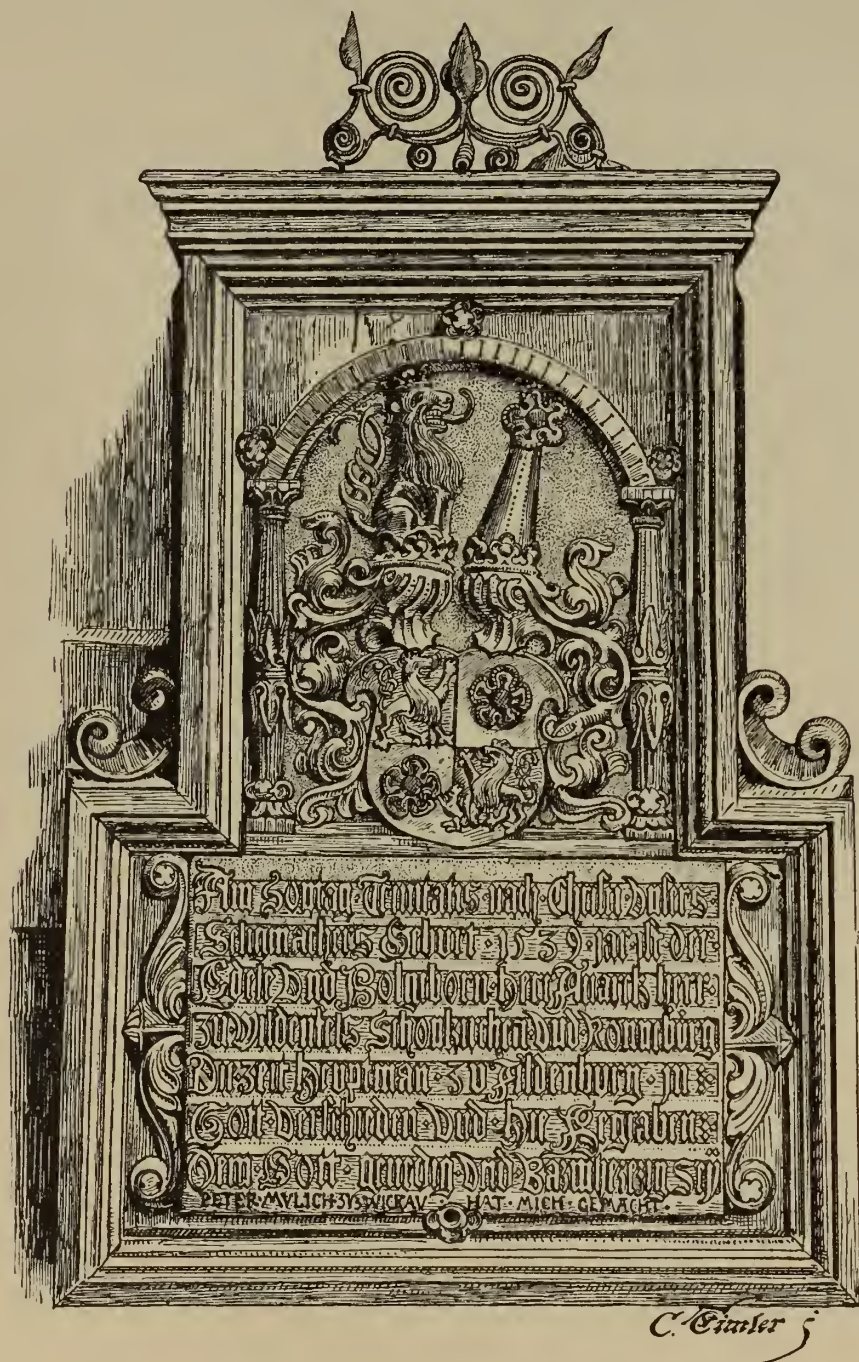 Am Sontag Trinitatis nach Christi Vnsers
Selichmachers Geburt · 1539 · jar ist der
Edele Vnd Wolgeborn herr Anarck herr
zu Wildenfels Schonkirchen Vnd Ronneburg
Die zeit heuptman zu Aldenburg · in
Gott · Verschieden · Vnd · hie · Begraben
Dem · Gott · genedig · Vnd Barmherzig Sey
PETER · MVLICH · ZV · ZWICKAV · HAT · MICH · GEMACHT ·
C. Timler